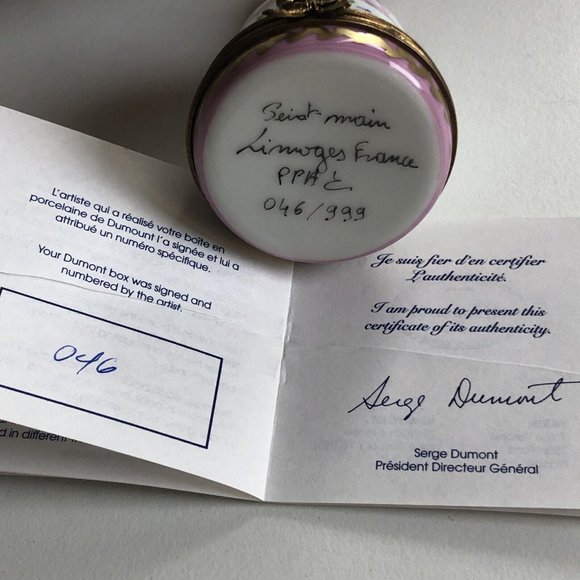 Peint main
Limoges France
PPA L
046/999
L'artiste qui a réalisé votre boîte en
porcelaine de Dumount l'a signée et lui a
attribué un numéro spécifique.
Your Dumont box was signed and
numbered by the artist.
046
d in different
Je suis fier d'en certifier
L'authenticité.
I am proud to present this
certificate of its authenticity.
Serge Dumont
Serge Dumont
Président Directeur Général